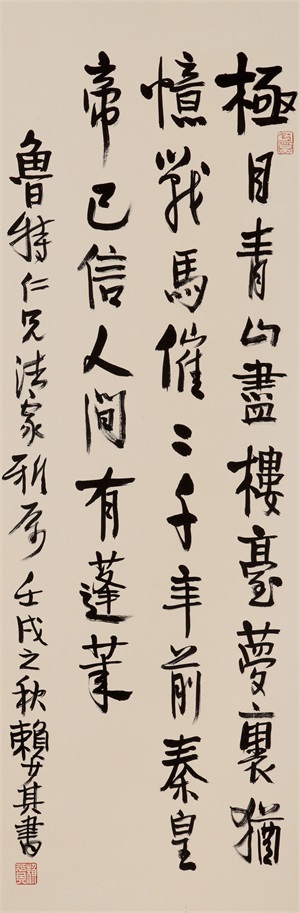 極目青山盡樓臺夢裏猶
憶戰馬催二千年前秦皇
帝已信人間有蓬萊
魯特仁兄法家雅属 壬戌之秋賴少其書